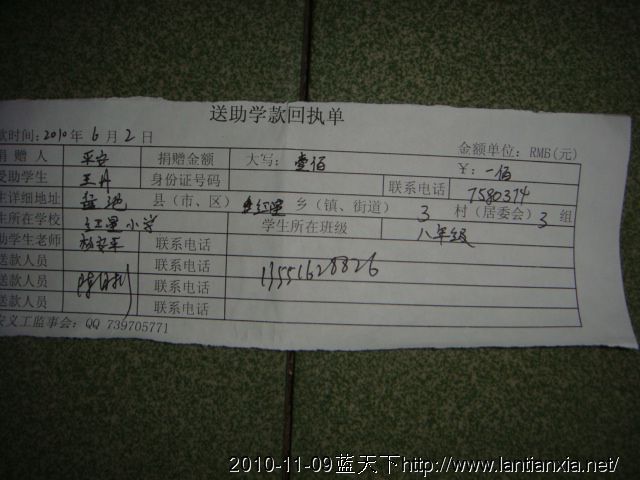 送助学款回执单
款时间:2010年6月2日 金额单位: RMB(元)
捐赠人 平安 捐赠金额 大写: 壹佰 ¥: 一佰
受助学生 王丹 身份证号码 联系电话 7580374
主详细地址 县(市、区) 乡(镇、街道) 3 村(居委会) 3 组
生所在学校 红星小学 学生所在班级 八年级
助学生老师 联系电话
送款人员 联系电话 13551628826
送款人员 联系电话
送款人员 联系电话
安义工监事会: QQ 739705771
2010-11-09蓝天下http://www.lantianxia.net/